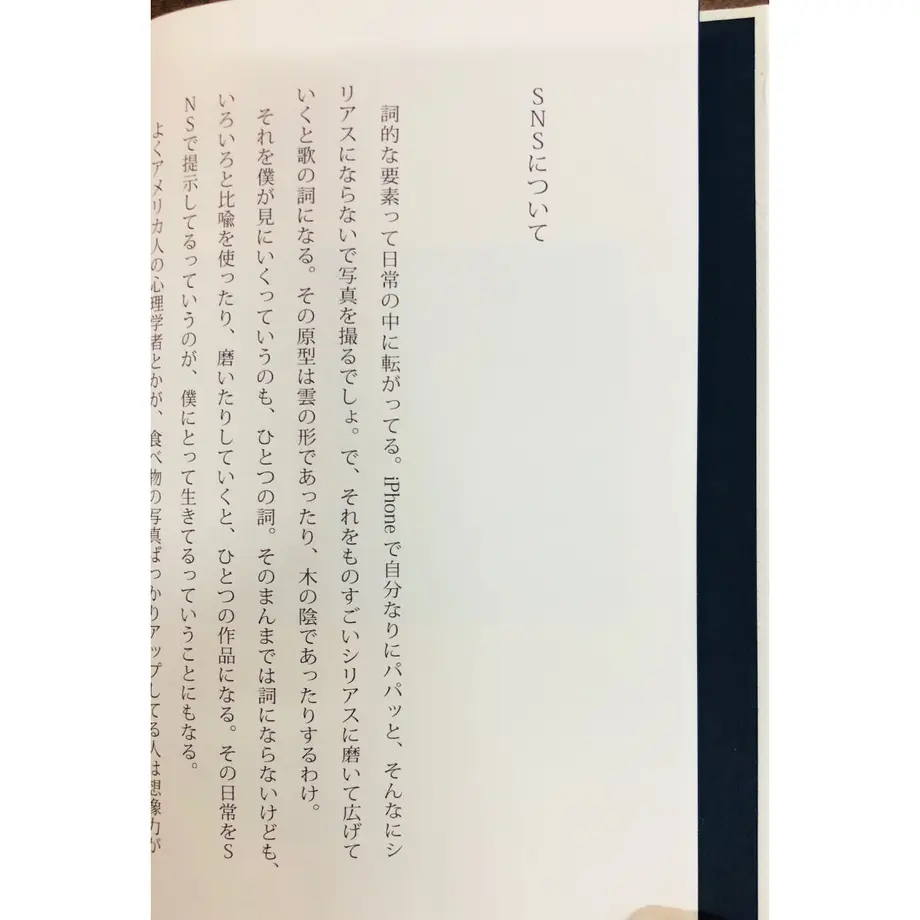 SNSについて
詞的な要素って日常の中に転がってる。iPhoneで自分なりにパパッと、そんなにシ
リアスにならないで写真を撮るでしょ。で、それをものすごいシリアスに磨いて広げて
いくと歌の詞になる。その原型は雲の形であったり、木の陰であったりするわけ。
それを僕が見にいくっていうのも、ひとつの詞。そのまんまでは詞にならないけども、
いろいろと比喩を使ったり、磨いたりしていくと、ひとつの作品になる。その日常をS
NSで提示してるっていうのが、僕にとって生きてるっていうことにもなる。
よくアメリカ人の心理学者とかが、食べ物の写真ばっかりアップしてる人は想像力が